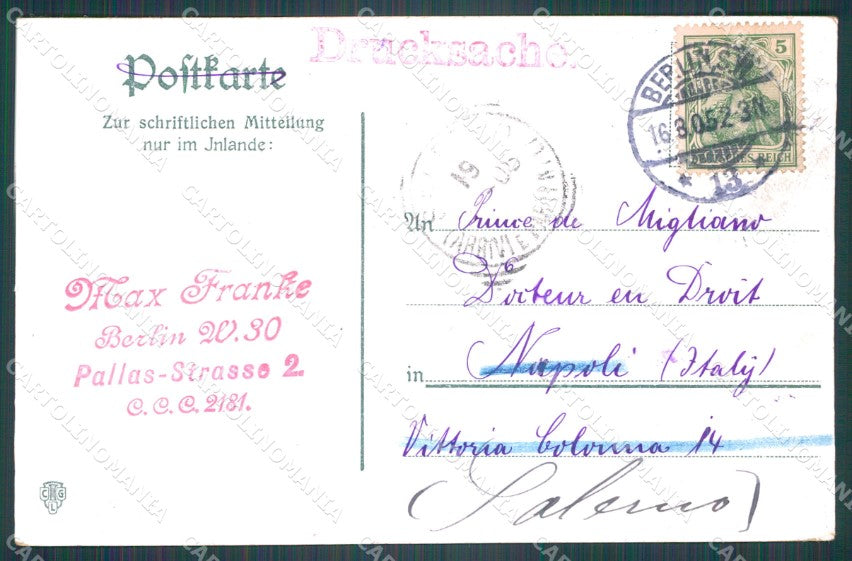 Drucksache.
Postkarte
Zur schriftlichen Mitteilung
nur im Inlande:
5
BERLIN S.W.
16.8.05 2-3N.
* 13 *
DEUTSCHES REICH
An Prince de Migliano
Docteur en Droit
in Napoli (Italy)
Vittoria Colonna 14
(Salerno)
Max Franke
Berlin W. 30
Pallas-Strasse 2.
C.C.C. 2181.
C G
L
CARTOLINOMANIA